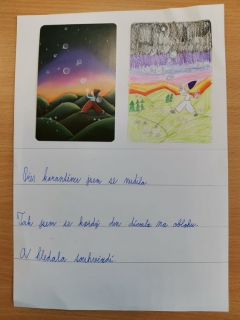 Přes karanténu jsem se nudila.
Tak jsem se každý den dívala na oblohu.
A hledala souhvězdí.